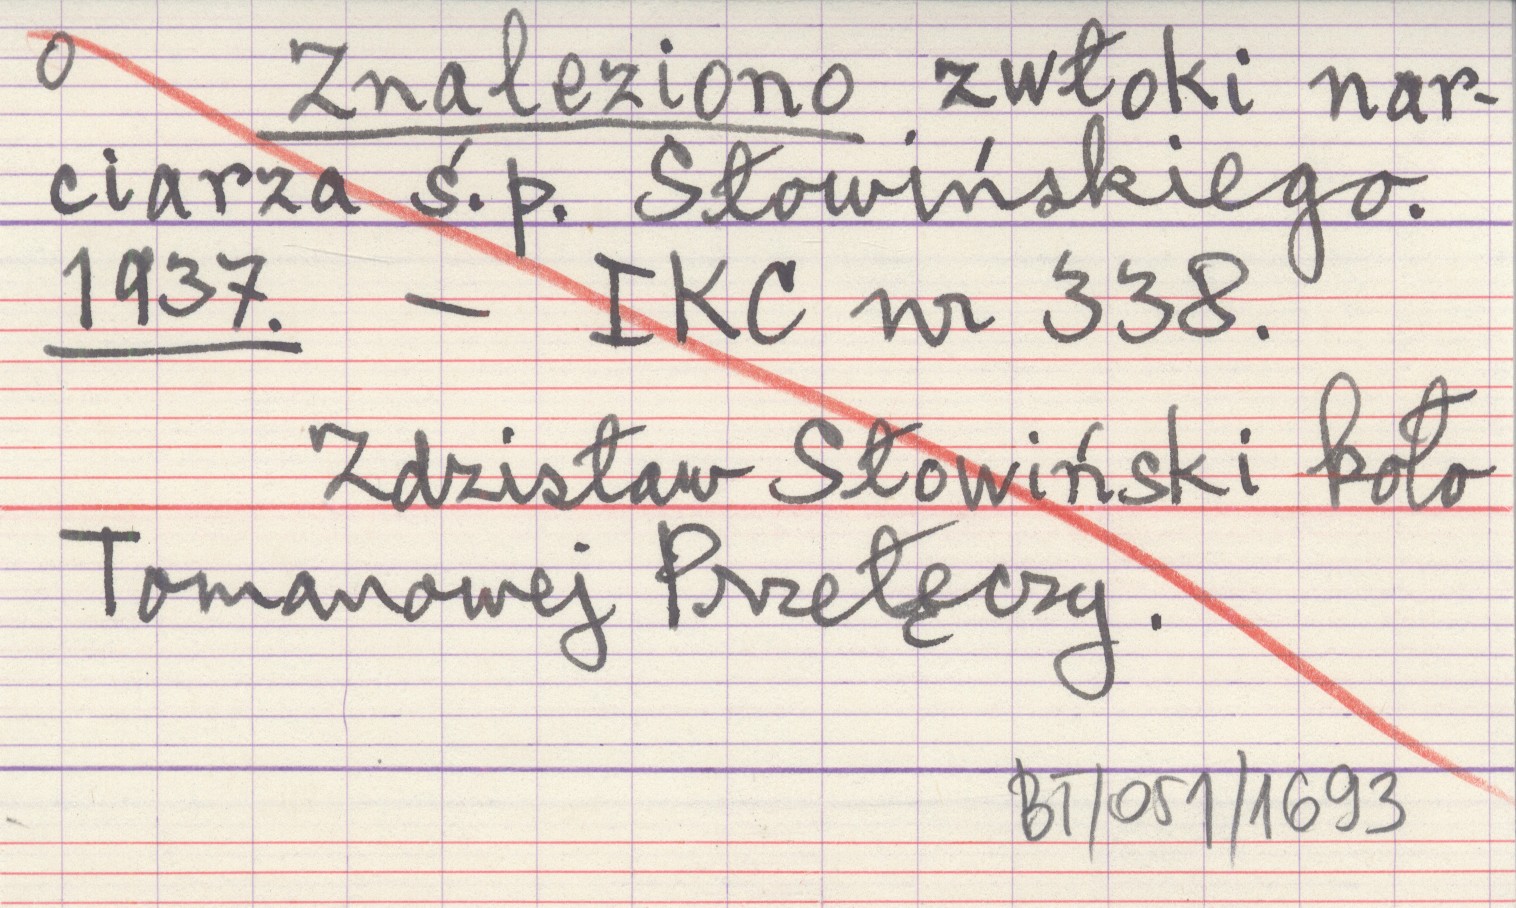 0 Znaleziono zwłoki nar-
ciarza ś.p. Słowińskiego.
1937. – IKC nr 338.
Zdzisław Słowiński koło
Tomanowej Przełęczy.
BT/051/1693